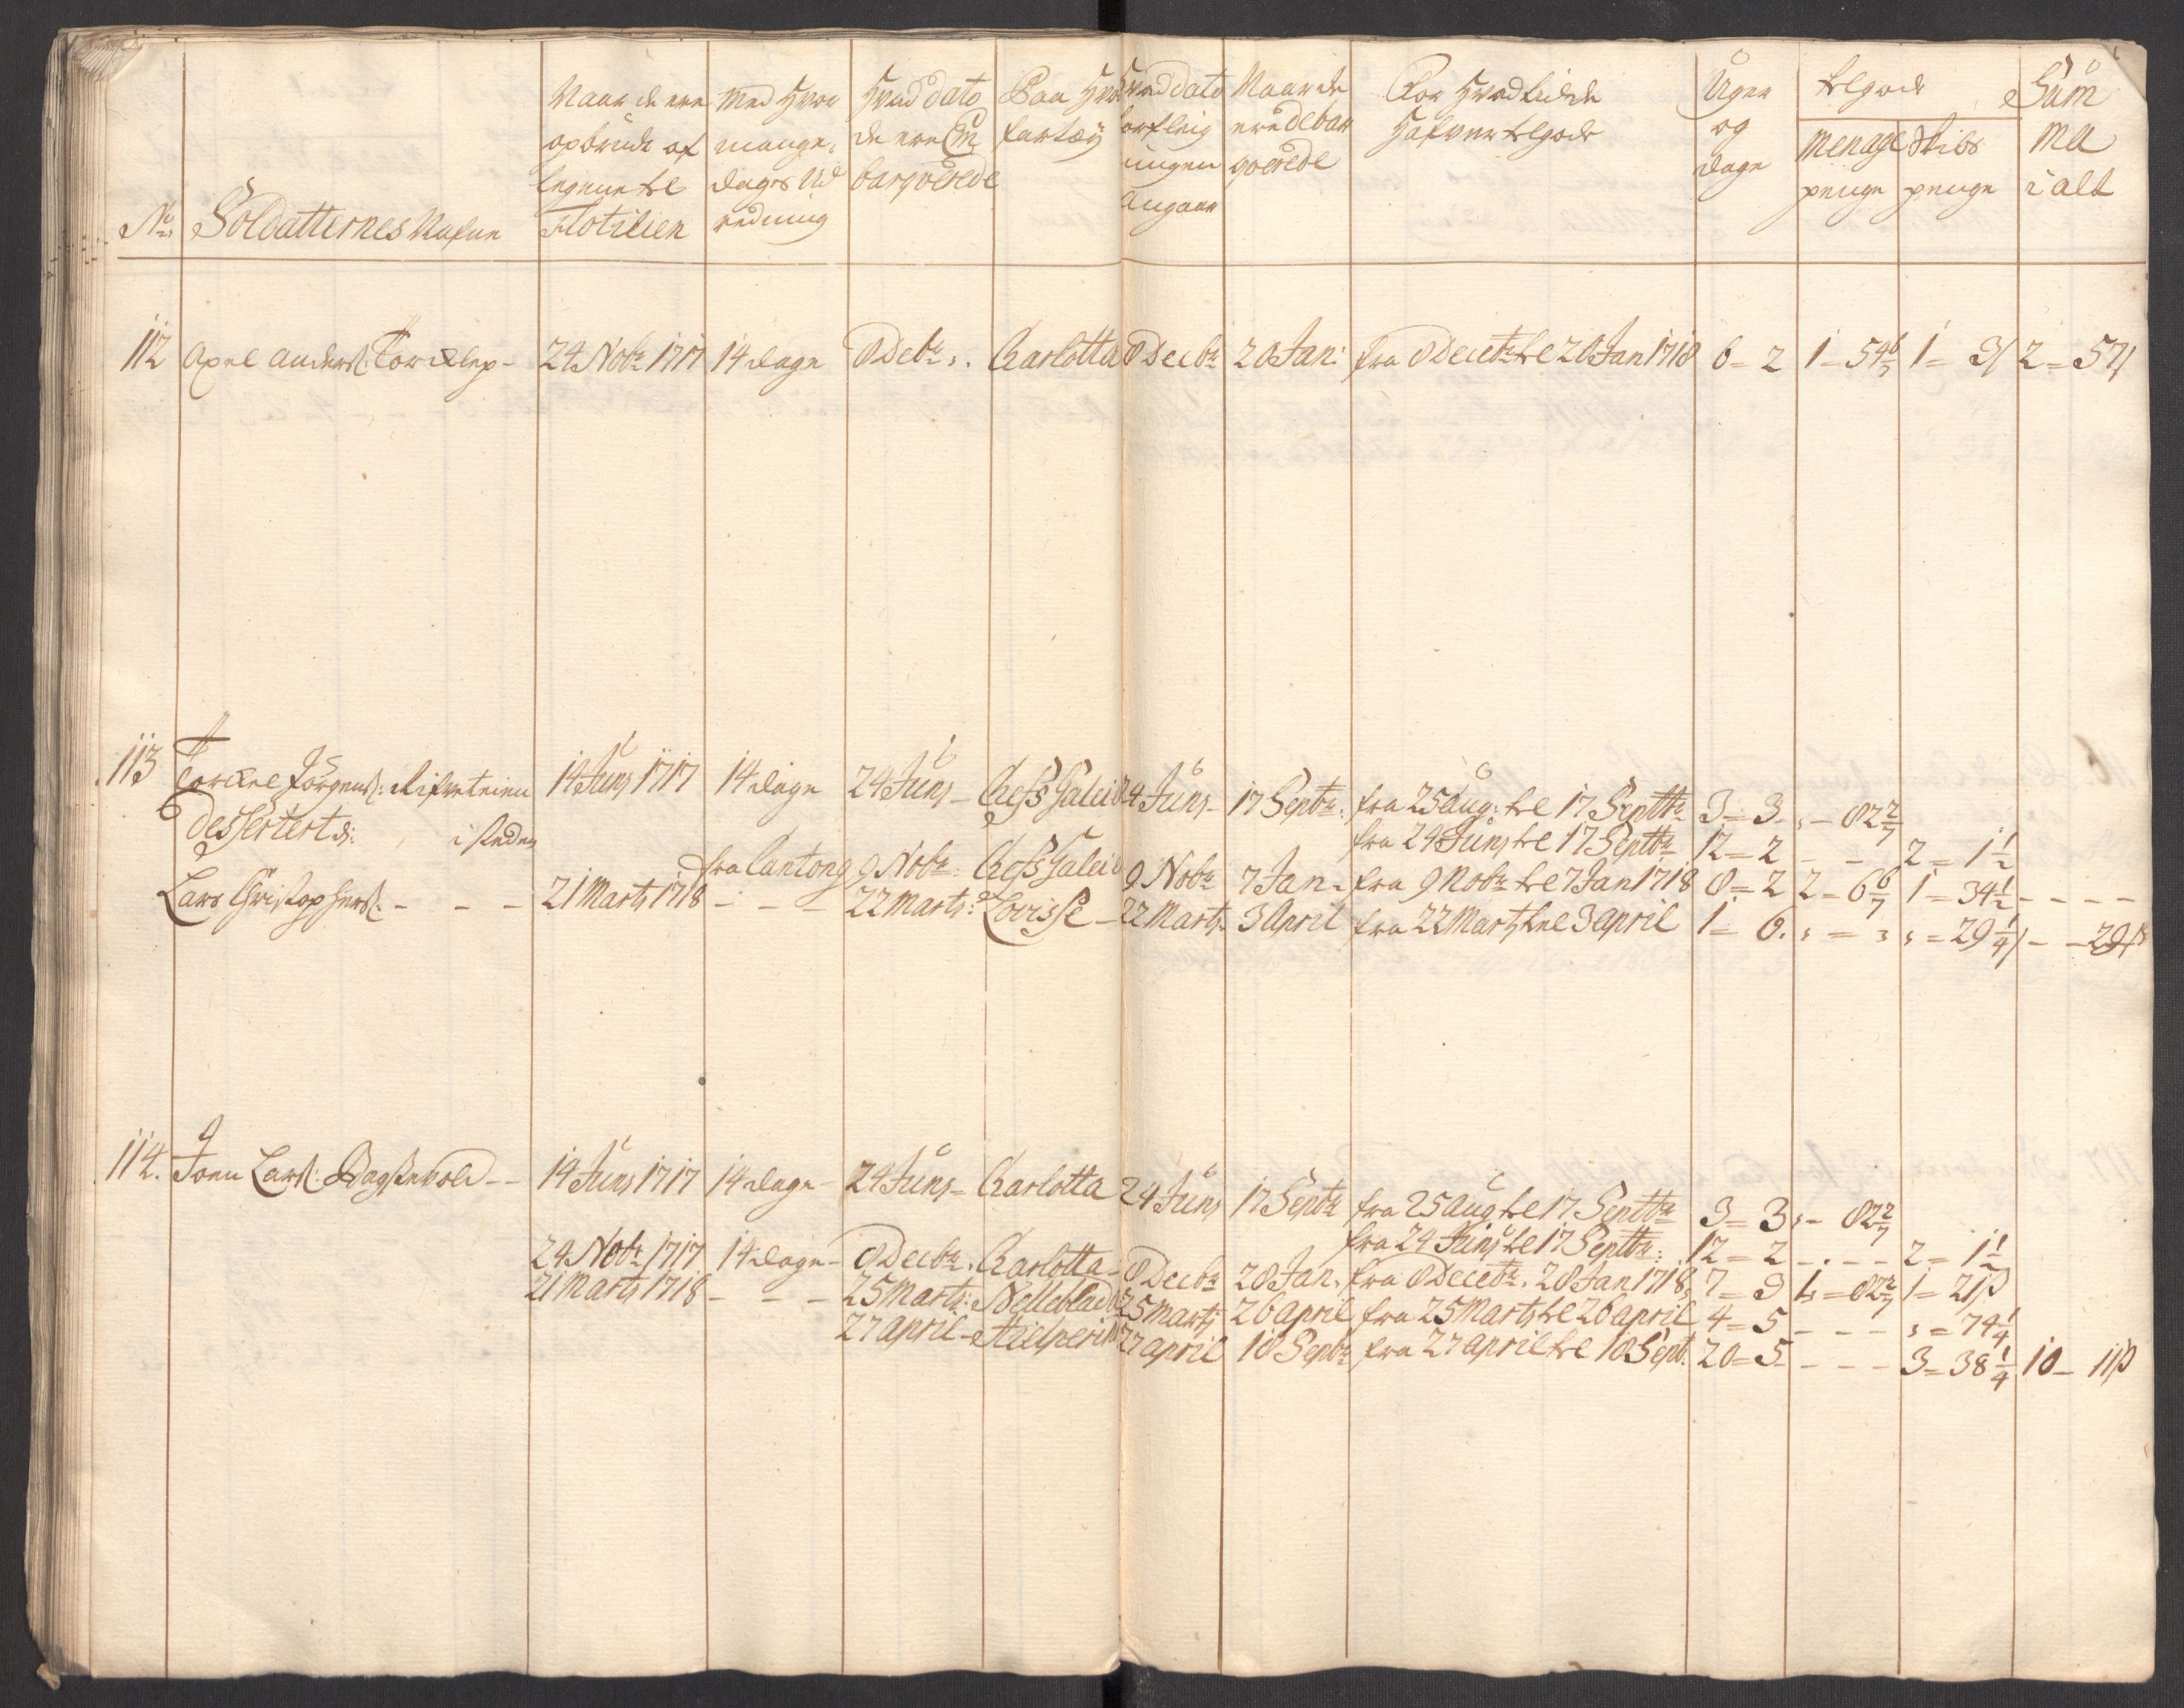 No Soldatternes Nafne
Naar de ere opbrudt af legeme til Flotilien
Med Hvor mange dages Ud redning
Hvad dato de ere Em barqverede
Paa Hvad fartøÿ
Hvad dato forfleig ningen Angaar
Naar de ere debar qverede
For Hvad tiide Hafver tilgode
Uger og dage
tilgode
Menage penge
Skibs penge
Summa i alt
112 Axel Anders: Torcklep- 24 Nobr 1717 14 dage 8 Debr: Charlotta 8 Decbr 20 Jan: fra 8 Decebr til 20 Jan 1718 6=2 1-54 6/7 1=3/ 2=57/
113 Torckel Jørgens: 14 Junj 1717 14 dage 24 Junj - Chefs Galeid 24 Junj- 17 Septbr: fra 25 Aug: til 17 Septtbr 3=3- ,-82 2/7
Dessertert d: i steden fra 24 Junj til 17 Septtbr 12=2 - - 2=1 1/2
fra Cantong 9 Nobr: Chefs Galeid 9 Nobr 7 Jan- fra 9 Nobr til 7 Jan 1718 8=2 2-6 6/7 1=34 1/2 - - - -
Lars Christophers: - - - 21 Martj 1718 - - - 22 Martj: Lovisse - 22 Martj- 3 April fra 22 Martj til 3 april 1=6. , = , , =29 1/4/- -29/
114. Joen Lars: 14 Junj 1717 14 dage- 24 Junj- Charlotta 24 Junj 17 Septbr fra 25 Aug til 17 Septtbr 3=3 ,- 82 2/7
fra 24 Junj til 17 Septtbr: 12=2 -.-- 2=1 1/2
24 Nobr 1717 14 dage- 8 Decbr. Charlotta- 8 Decbr 28 Jan. fra 8 Decebr. 28 Jan 1718, 7=3 1=82 2/7 1=21ß
21 Martj 1718 - - - 25 Martj: Nelleblad 25 Martj 26 april fra 25 Martj til 26 april 4=5 - - - , =74 1/4
27 april- 27 april 18 Septbr fra 27 april til 18 Sept: 20=5- - - - 3=38 1/4 10- 11ß